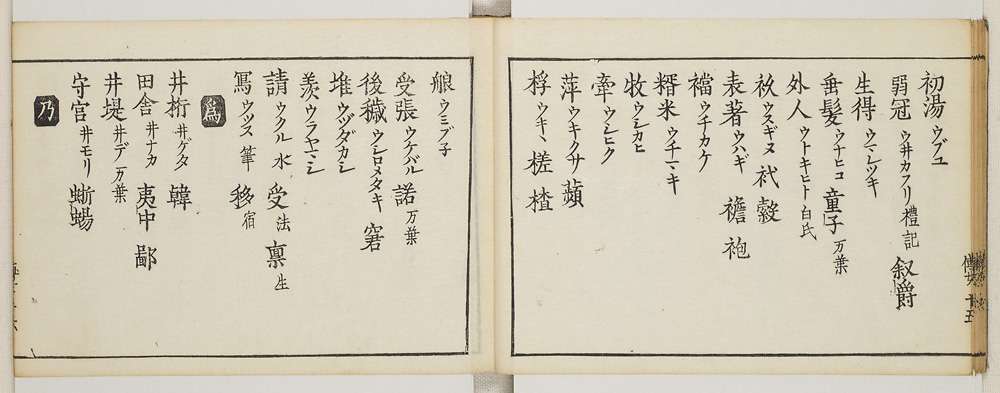 初湯ウブユ
弱冠ウ井カフリ禮記叙爵
生得ウマレツキ
垂髪ウナヒコ童子万葉
外人ウトキヒト白氏
袀ウスギヌ衬縠
表著ウハギ襜袍
襠ウチカケ
糈米ウチマキ
牧ウシカヒ
牽ウシヒク
萍ウキクサ蘋
桴ウキヽ槎楂
艆ウミブ子
受張ウケバル諾万葉
後穢ウシロメタキ窘
堆ウヅダカシ
羨ウラヤマシ
請ウクル水受法禀生
寫ウツス筆移宿
爲
井桁井ゲタ韓
田舎井ナカ夷中鄙
井堤井デ万葉
守宮井モリ蜥蜴
乃